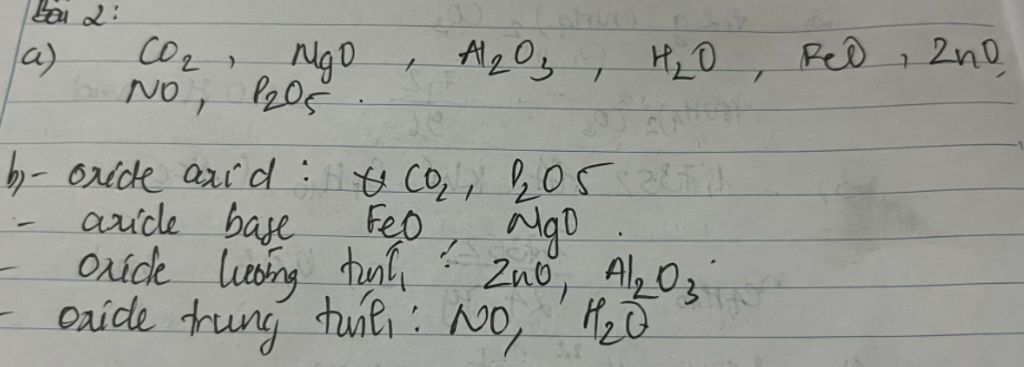 Bài 2:
a) CO₂, MgO, Al₂O₃, H₂O, FeO, ZnO,
NO, P₂O₅.
b) - oxide axid: CO₂, P₂O5
- axide base FeO MgO.
- Oxide lưỡng tính: ZnO, Al₂O₃
- oxide trung tính: NO, H₂O